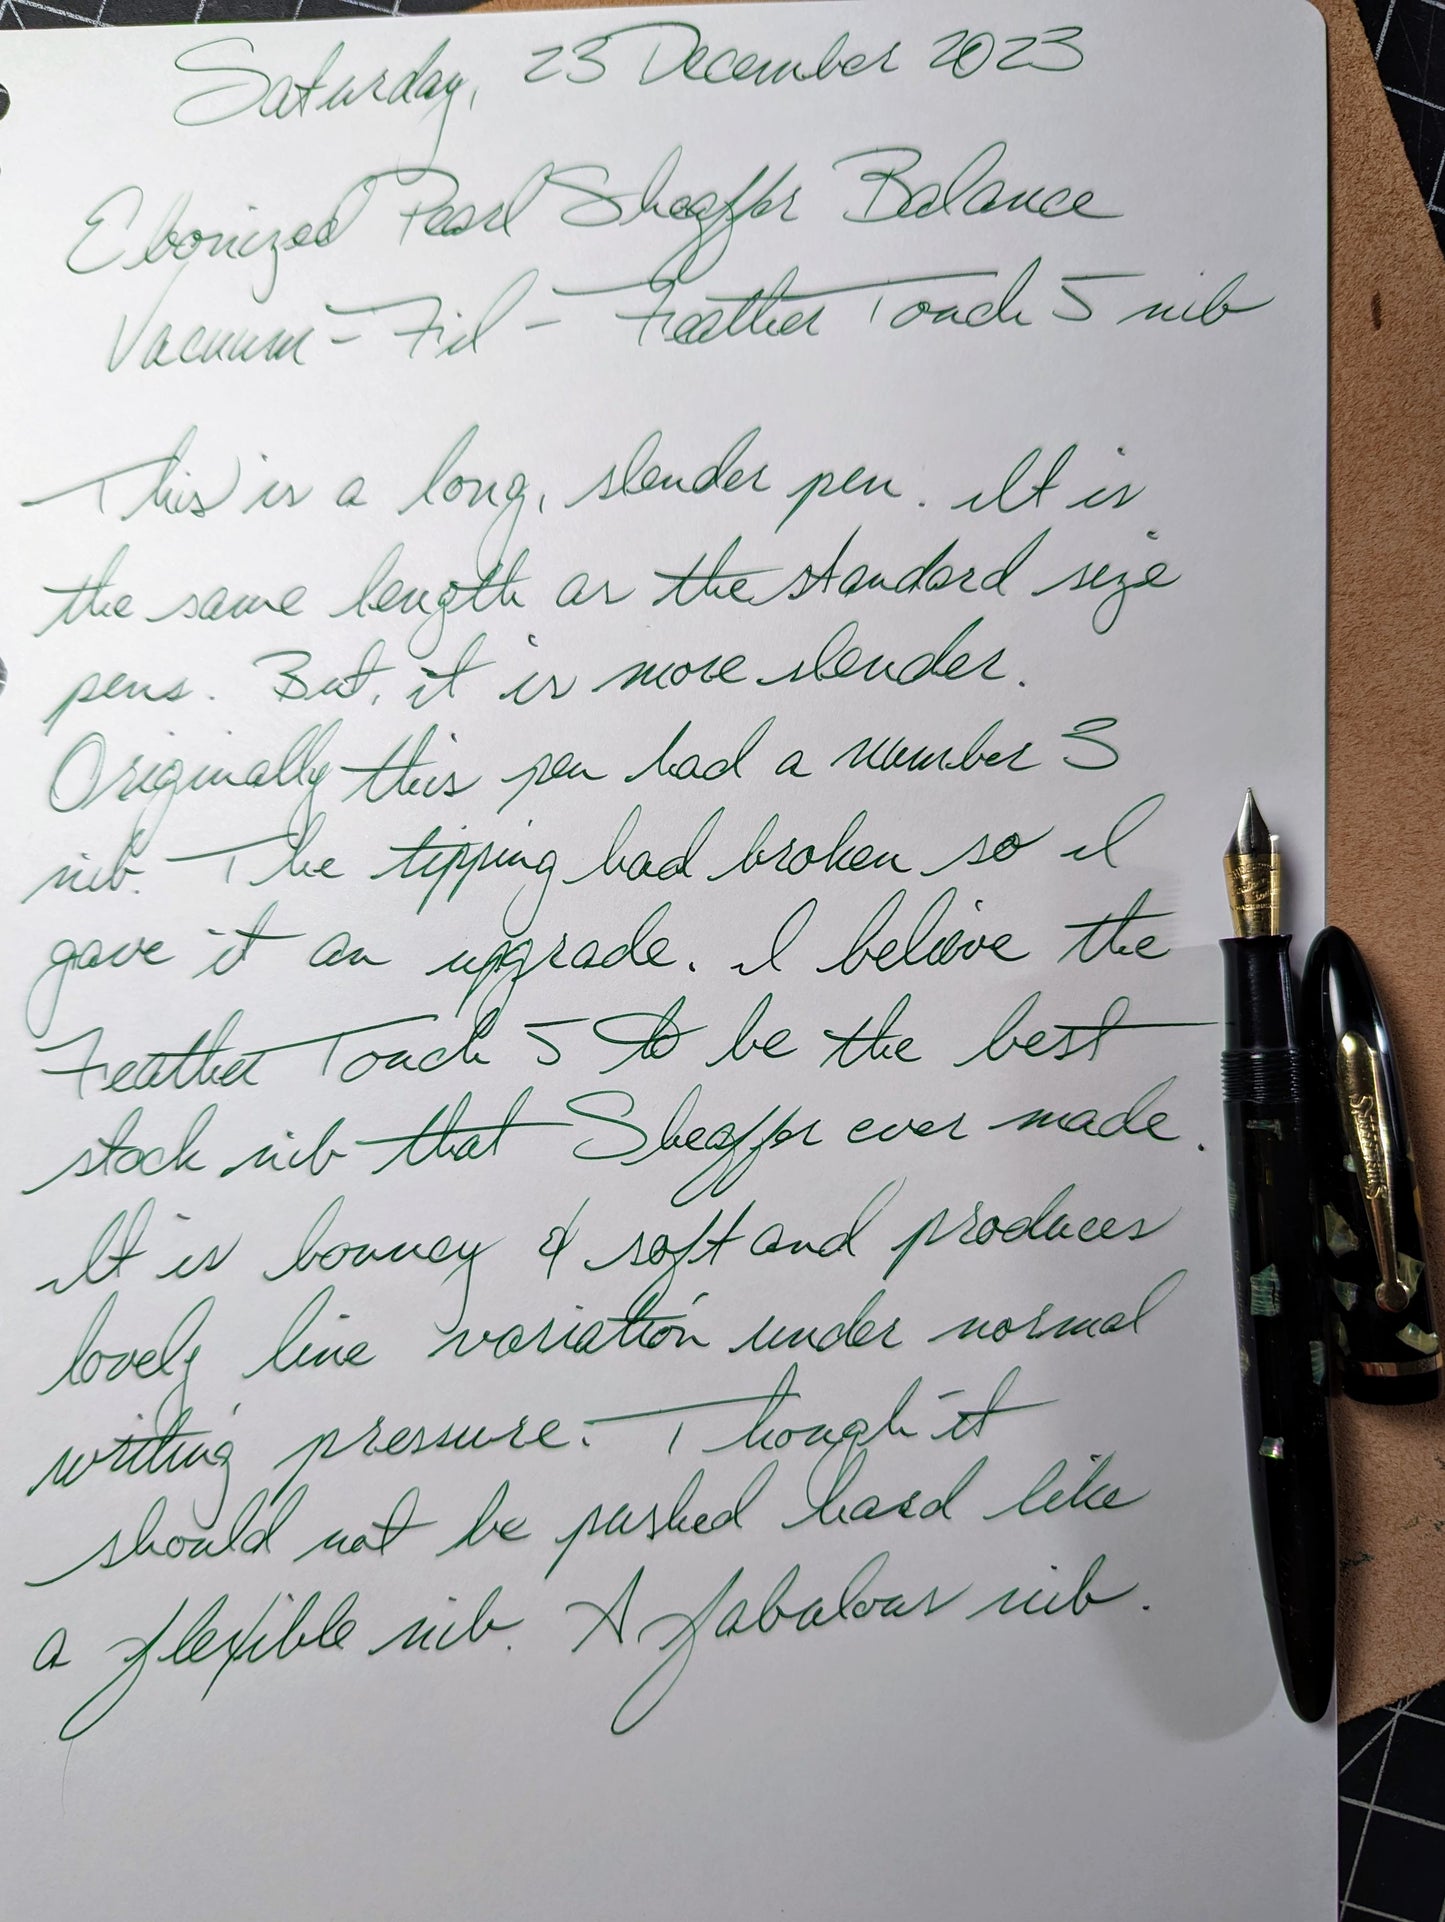 Saturday, 23 December 2023
Ebonized Pearl Sheaffer Balance
Vacuum-Fil - Feather Touch 5 nib
This is a long, slender pen. It is
the same length as the standard size
pens. But, it is more slender.
Originally this pen had a number 3
nib. The tipping had broken so I
gave it an upgrade. I believe the
Feather Touch 5 to be the best
stock nib that Sheaffer ever made.
It is bouncy & soft and produces
lovely line variation under normal
writing pressure. Though it
should not be pushed hard like
a flexible nib. A fabulous nib.
SHEAFFER'S